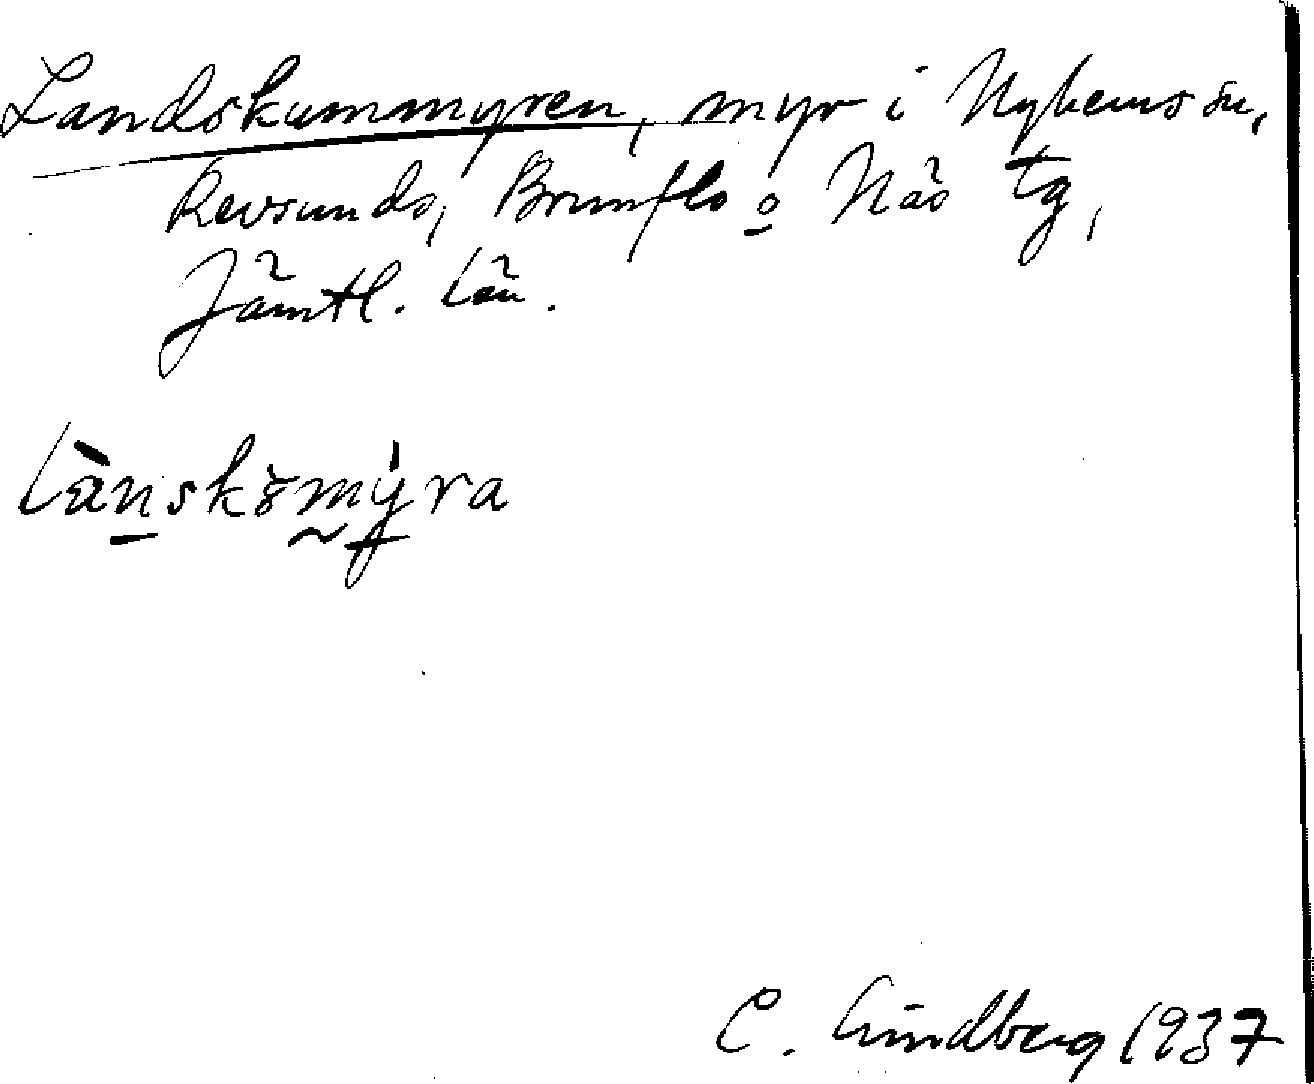 Landskummyren, myr i Nyhems sn,
Revsunds, Brunflo o Näs tg,
Jämtl. län.
Lànskömýra
C. Lindberg 1937